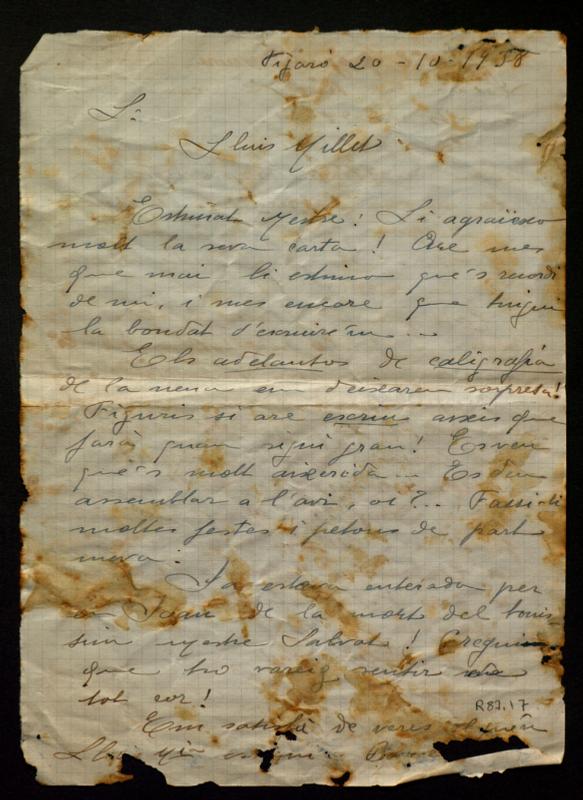 Figaró 20-10-1958
Sr.
Lluis Millet
Estimat Mestre: Li agraeixo
molt la seva carta! Are mes
que mai li estimo que's recordi
de mi, i mes encare que tingui
la bondat d'escriure'm...
Els adelantos de caligrafia
de la nena em deixaren sorpresa!
Figuris si are escriu aixís que
farà quan sigui gran! Es veu
que's molt aixerida... Es deu
assemblar a l'avi, oi?.. Fassi-li
moltes festes i petons de part
meva.
Ja estava enterada per
en Juan de la mort del
mestre Salvat! Cregui
que ho vareig sentir
tot cor!
R87.17
Em de veres